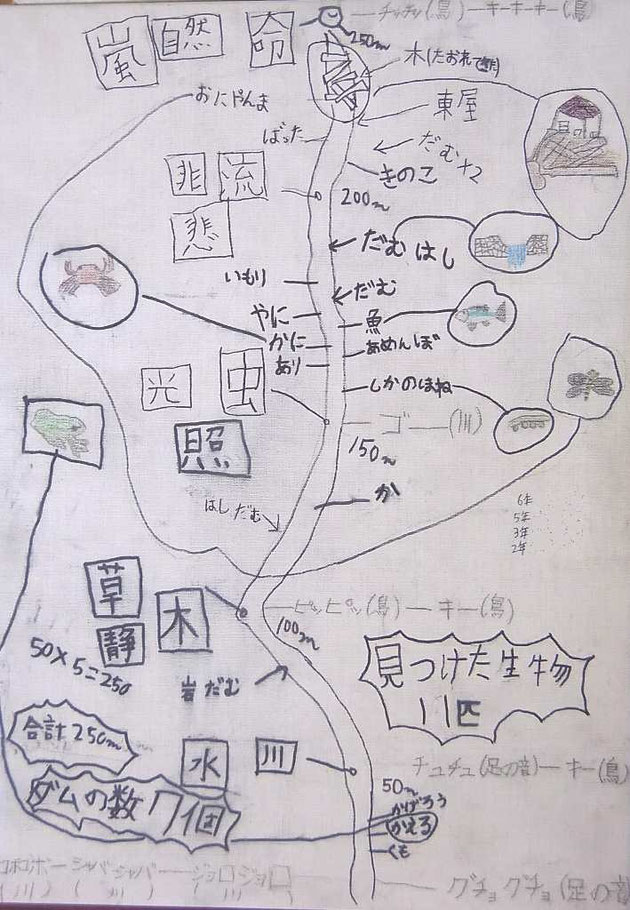 チッチッ(鳥)ーキーキーキー(鳥)
嵐
自然
命
250m
木(たおれて
東屋
おにやんま
ばった
だむ
きのこ
非
流
悲
200m
だむはし
いもり
だむ
やに
魚
かに
あめんぼ
あり
しかのほね
光
虫
照
ゴーー(川)
150m
か
はしだむ
6年
5年
3年
2年
草
木
静
ピッピッ(鳥)ーキー(鳥)
100m
50×5=250
岩だむ
見つけた生物
11匹
合計250m
水
川
チュチュ(足の音)ーキー(鳥)
ダムの数7個
50m
かげろう
かえる
くも
シャバーシャバーージョロジョロ
(川)
グチョグチョ(足の音)